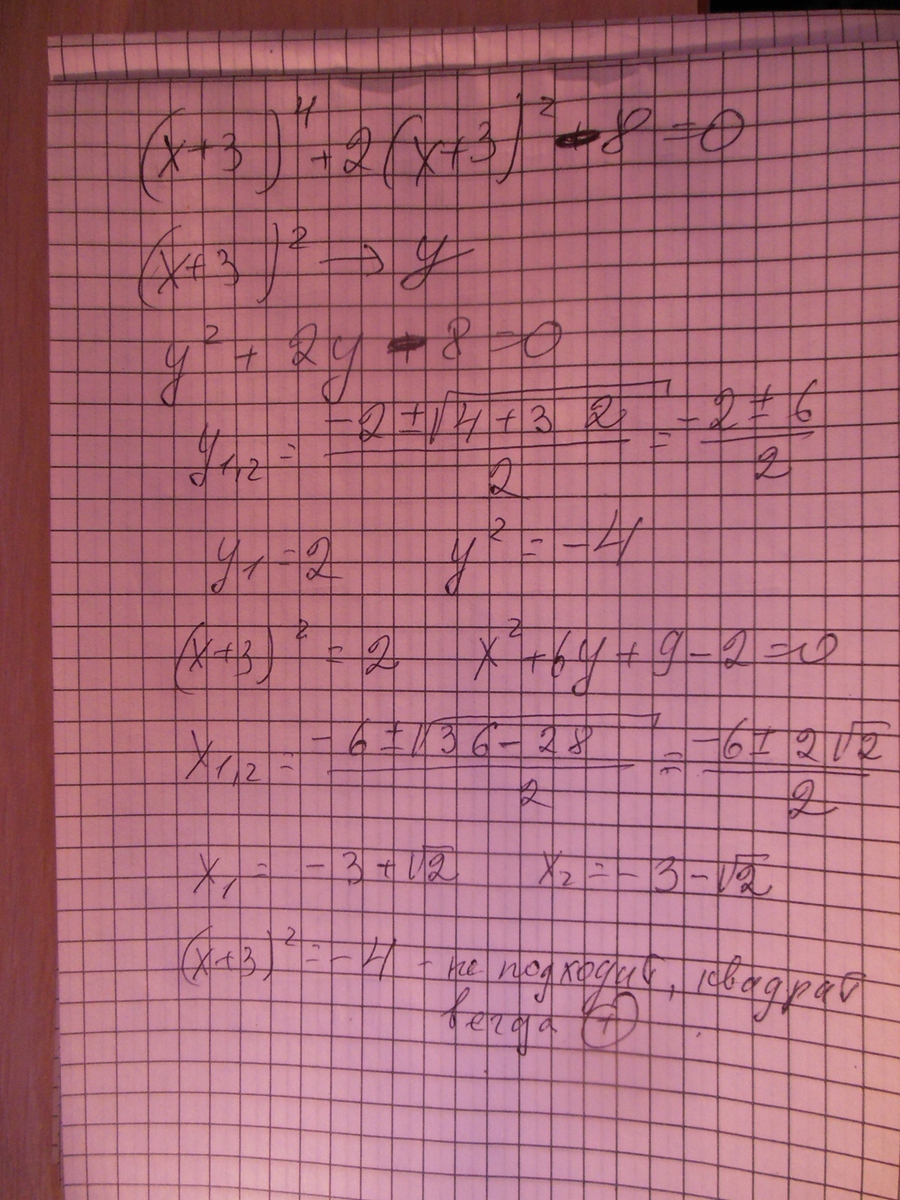 (x+3)⁴ + 2(x+3)² - 8 = 0
(x+3)² → y
y² + 2y - 8 = 0
y₁,₂ = (-2 ± √(4 + 32)) / 2 = (-2 ± 6) / 2
y₁ = 2 y² = -4
(x+3)² = 2 x² + 6y + 9 - 2 = 0
x₁,₂ = (-6 ± √(36 - 28)) / 2 = (-6 ± 2√2) / 2
x₁ = -3 + √2 x₂ = -3 - √2
(x+3)² = -4 - не подходит, квадрат
вегда (+)